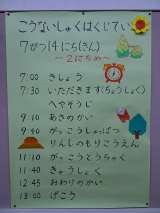 こうないしゅくはくしてい
7がつ14にち(きん)
〜2にちめ〜
7:00 きしょう
7:30 いただきます(ちょうしょく)
へやそうじ
9:10 あさのかい
9:50 がっこうしゅっぱつ
りんしのもりこうえん
11:10 がっこうとうちゃく
11:40 きゅうしょく
12:45 おわりのかい
13:00 げこう